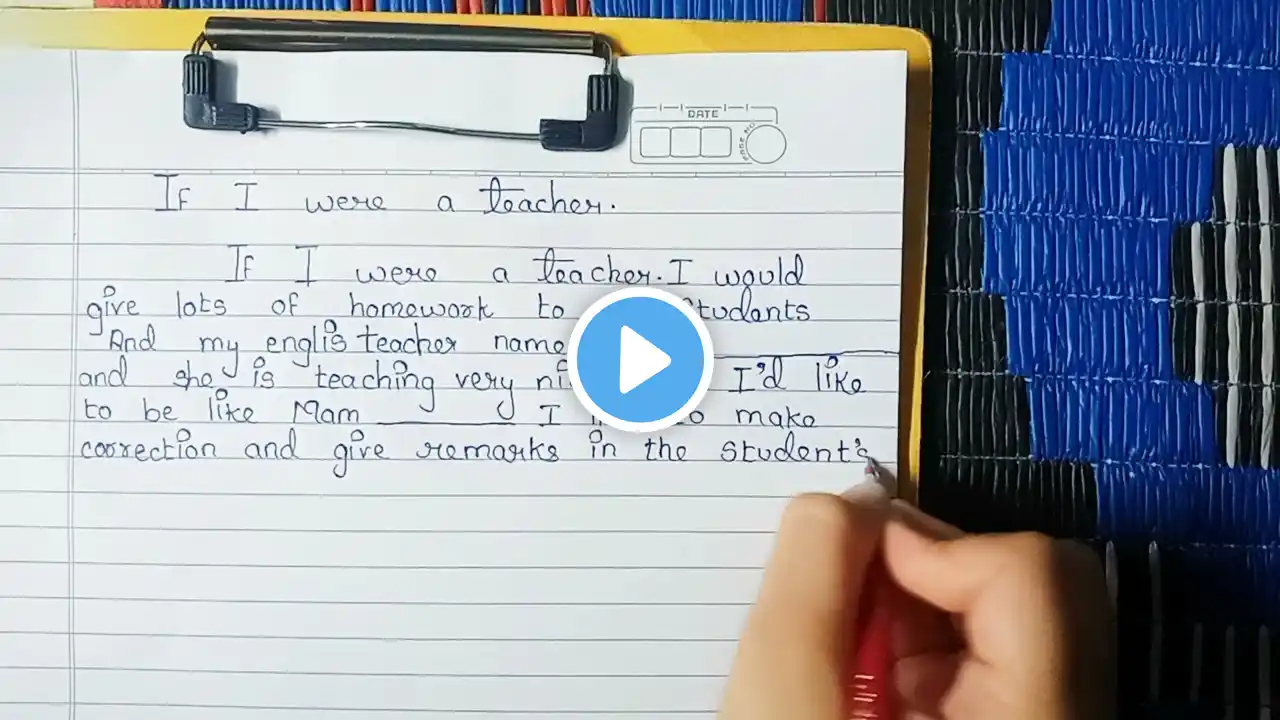 DATE
PAGE NO.
If I were a teacher.
If I were a teacher. I would
give lots of homework to students
And my englis teacher name
and she is teaching very I'd like
to be like Mam ________ I to make
correction and give remarks in the student's